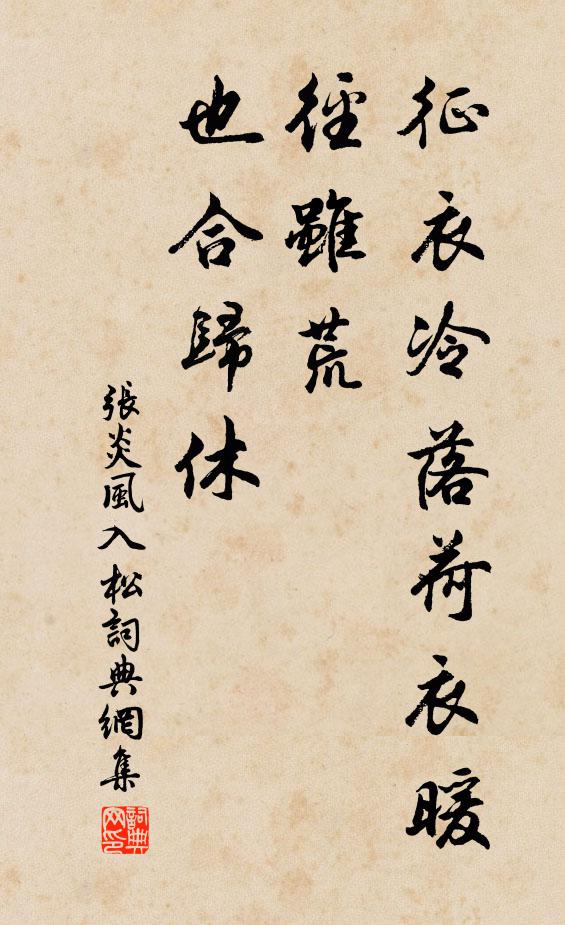 征衣冷落荷衣暖
徑雖荒
也合歸休
張炎風入松詞典網集
詞典网印